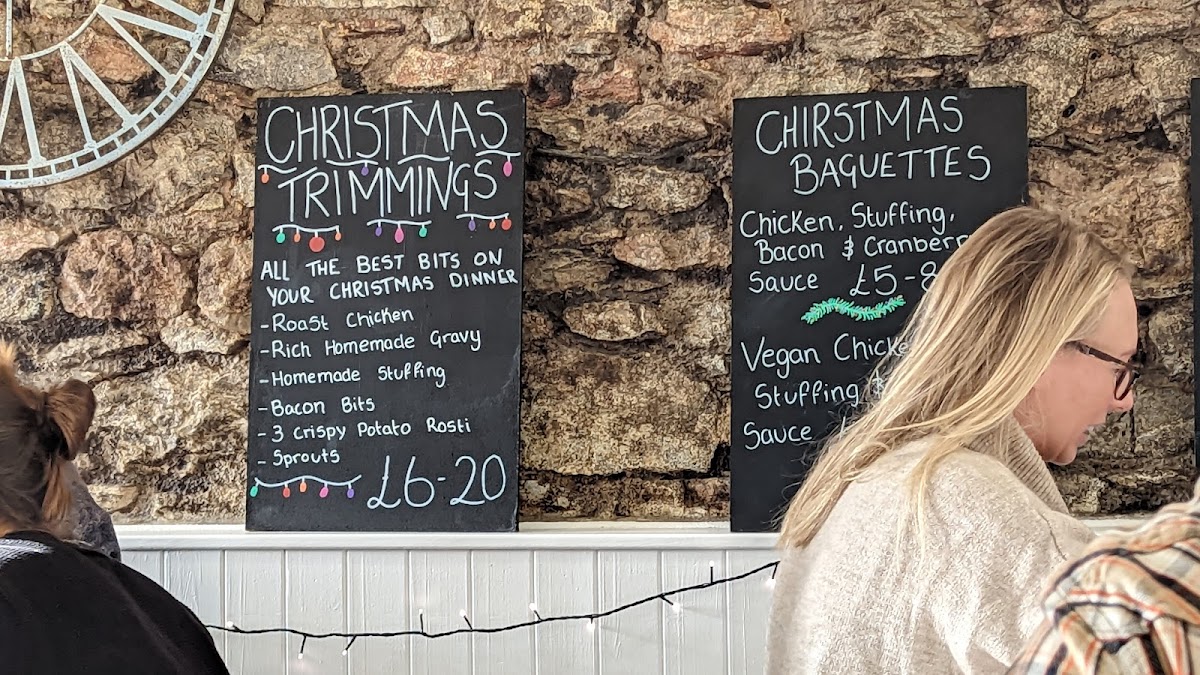 CHRISTMAS
TRIMMINGS
ALL THE BEST BITS ON
YOUR CHRISTMAS DINNER
- Roast Chicken
- Rich Homemade Gravy
- Homemade Stuffing
- Bacon Bits
- 3 Crispy Potato Rosti
- Sprouts
£6-20
CHIRSTMAS
BAGUETTES
Chicken, Stuffing,
Bacon & Cranberr
Sauce £5-8
Vegan Chick
Stuffing
Sauce